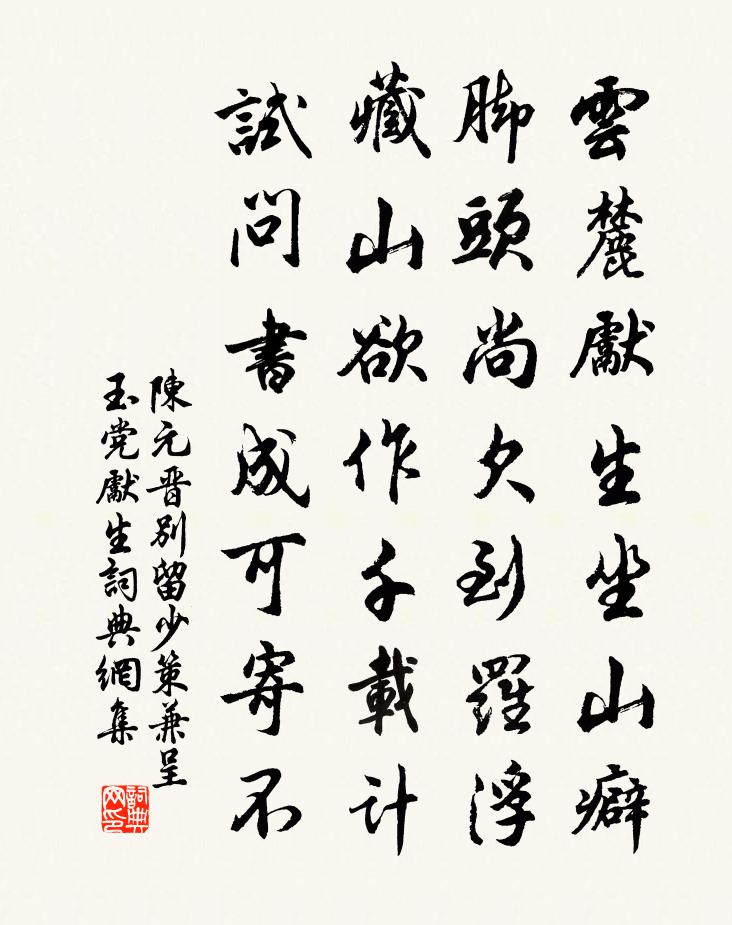 雲麓獻生坐山癖
脚頭尚欠到羅浮
藏山欲作千載計
試問書成可寄不
陳元晋別留少策兼呈
玉党獻生詞典網集
詞典
网印